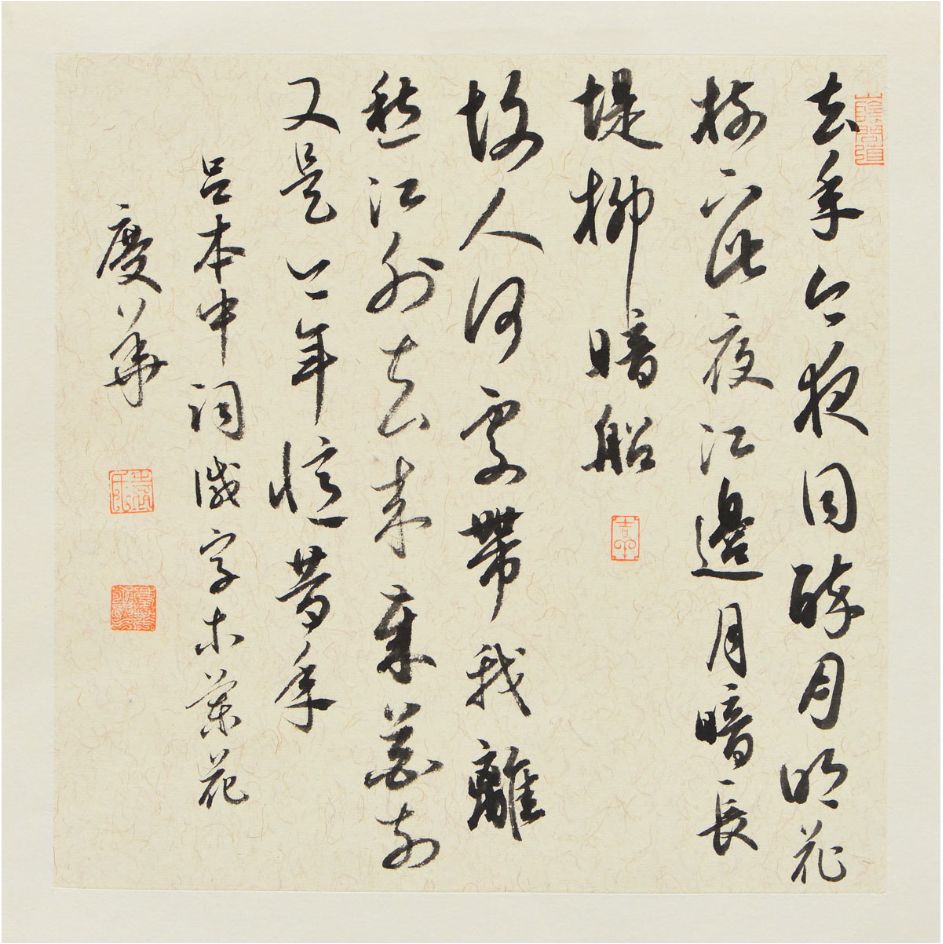 去年今夜同醉月明花
樹下此夜江邊月暗長
堤柳暗船
故人何處帶我離
愁江外去來歲花前
又是今年憶昔年
呂本中詞減字木蘭花
慶華